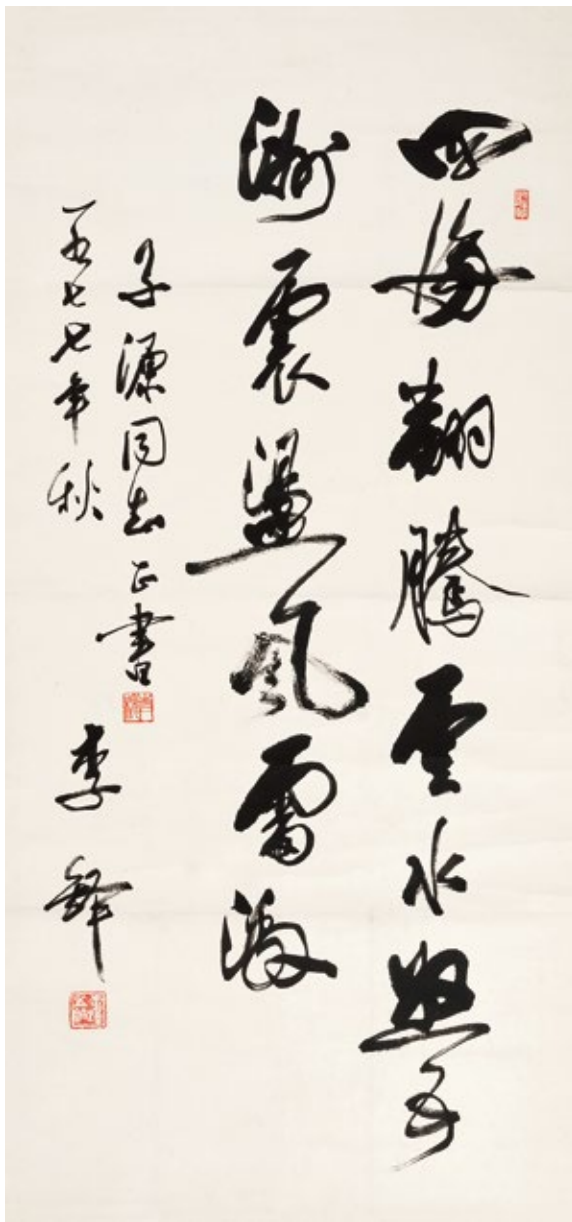 四海翻腾云水怒五
洲震盪风雷激
子源同志正书
一九七七年秋
李铎